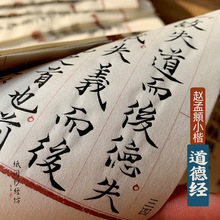 失道而後德失
失義而後
首也前
三四
赵孟頫小楷
道德经